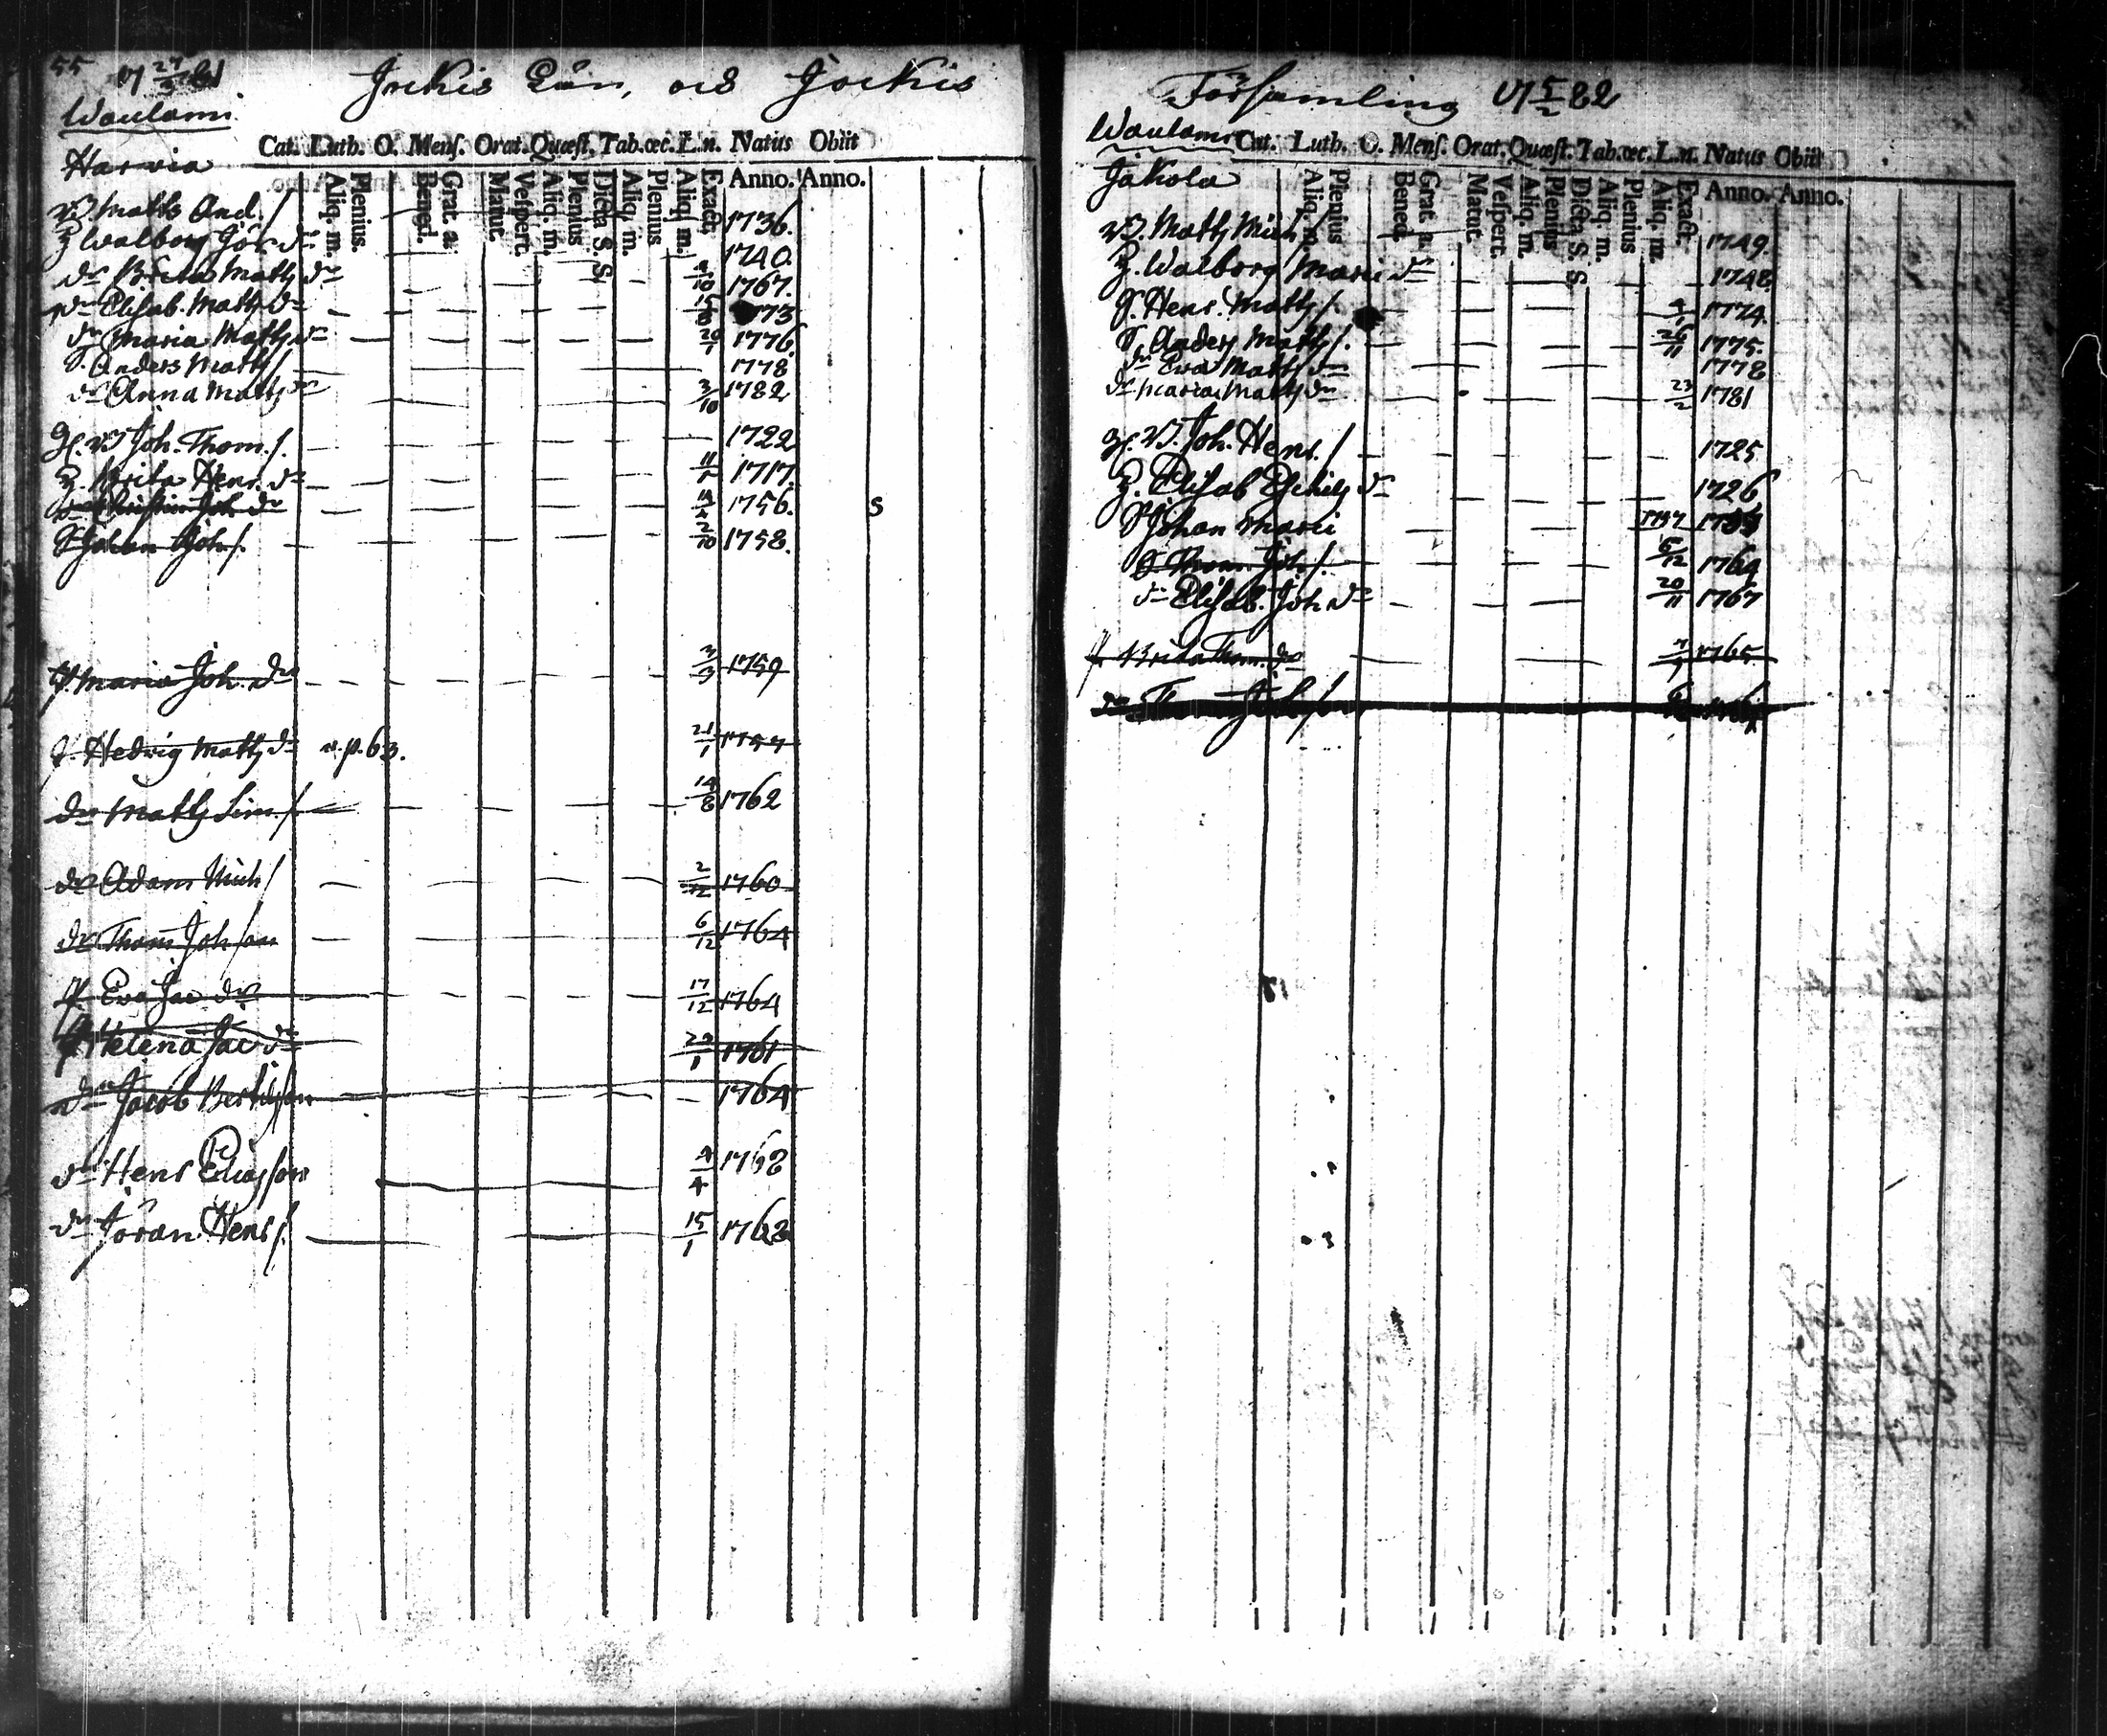 55 17 27/3 81 Jockis Län, och Jockis
Waulami
Cat. Luth. O. Menſ. Orat. Quæſt. Tab. œc. L. n. Natus Obiit
Harvia
Aliq. m. Plenius. Bened. Grat. a. Matut. Veſpert. Aliq. m. Plenius Dicta S. S. Aliq. m. Plenius Aliq. m. Exact. Anno. Anno.
B Matts And. / 1736.
H Walborg Jör dr 1740.
dr Brita Matts dr 10 1767.
dr Elisab. Matts dr 773
dr Maria Matts dr 1776
S. Anders Matts / 1778
dr Anna Matts dr 3/10 1782
B Joh. Thom. /. 1722
H. Brita Henr. dr 1717.
dr Christin Joh dr 1756. S
S Johan Joh /. 2/10 1758.
P. Maria Joh. dr 3/3 1759
P. Hedvig Matts dr v. p. 63. 21/1 1757
dr Matts Sim. / 14/8 1762
dr Adam Mich / 2/12 1760
dr Thom Joh son 6/12 1764
P. Eva Jac dr 17/12 1764
P Helena Jac dr 29/1 1761
dr Jacob Bertilsson 1764
dr Henr Eliasson 4 1768
dr Jöran Henr /. 15/1 1768
Församling 17 5/2 82
Waulami Cat. Luth. O. Menſ. Orat. Quæſt. Tab. œc. L. n. Natus Obiit
Jakola
Aliq. m. Plenius Bened. Grat. a. Matut. Veſpert. Aliq. m. Plenius Dicta S. S. Aliq. m. Plenius Aliq. m. Exact. Anno. Anno.
B. Matts Mich / 1749.
H. Walborg Marc dr 1748
S. Henr. Matts /. 1774.
S. Anders Matts /. 26/11 1775.
dr Eva Matts dr 1778
dr Maria Matts dr 23/2 1781
B. Joh. Henr. / 1725
H. Elisab Eskils dr 1726
S Johan 1757
S Thom Joh /. 6/12 1764
dr Elisab. Joh dr 20/11 1767
P. Brita Thom. dr 1765
dr Thom Joh son